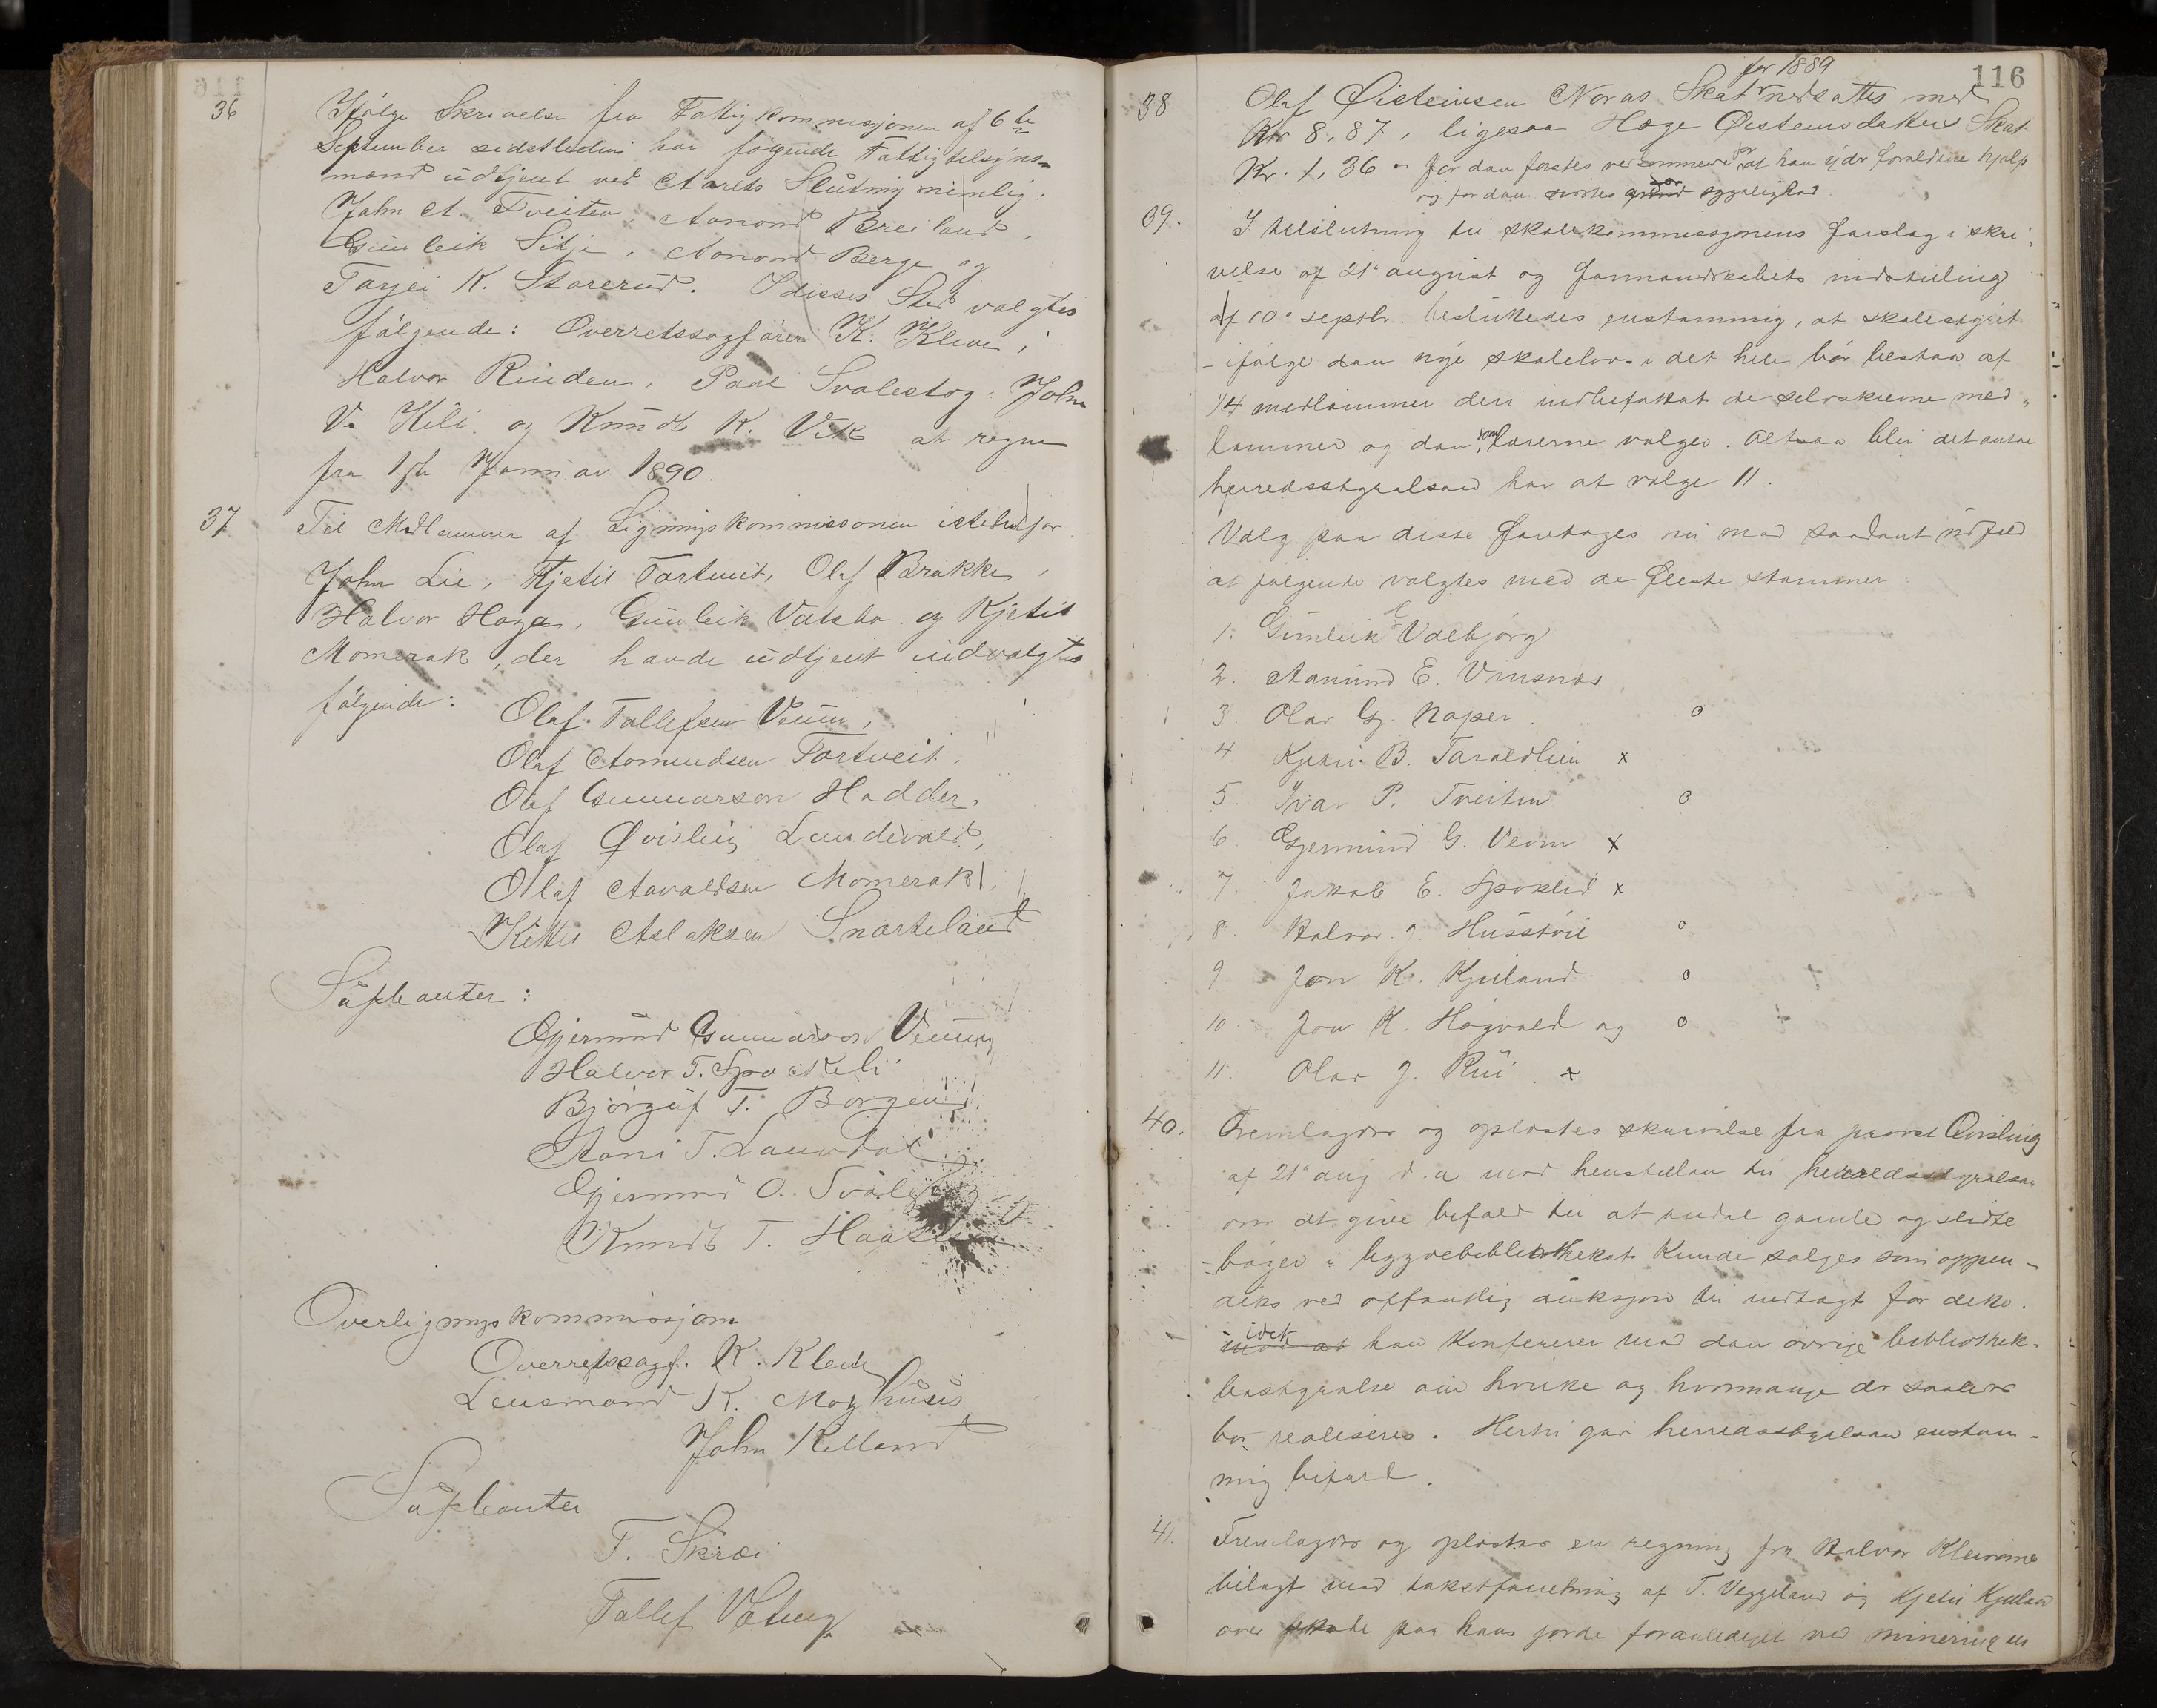 36
Ifølge Skrivelse fra Fattigkommissjonen af 6te
September sidstleden har følgende Fattigtilsyns-
mænd udtjent ved Aarets Slutning nemlig:
John A. Tveiten, Aamond Breiland,
Gunleik Sitje, Aamond Berge og
Tarjei K. Starerud. I disses Sted valgtes
følgende: Overretssagfører K. Kleve,
Halvor Rinden, Paal Svalestog, John
V. Kili og Knudt K. Vik at regne
fra 1ste Januar 1890.
37
Til Medlemmer af Ligningskommissonen istedenfor
John Lie, Kjetil Tortveit, Olaf Brakke,
Halvor Haga, Gunleik Vatsbo og Kjetil
Momerak, der havde udtjent indvalgtes
følgende:
Olaf Tallefsen Veum,
Olaf Aamundsen Tortveit,
Olaf Gunnarson Hadder,
Olaf Qvisling Lundevald,
Olaf Aavaldsen Momerak,
Kittil Aslaksen Snarteland
Supleanter:
Gjermund Gunnarson Veum
Halvor T. Spokeli
Bjørguf T. Borgen
Aani T. Laurdal
Gjermund O.
Knudt T.
Overligningskommissjon
Overretssagf. K. Kleve
Lensmand K. Moghuus
John Kelland
Supleanter
T. Skrei
Tallef Vøting
116
38
for 1889
Olaf Øisteinsen Noras Skat nedsattes med
Kr 8,87, ligesaa Hæge Øisteinsdatters Skat
Kr. 1,36 for den førstes vedkommende for at han yder forældrene hjælp
og for den sidstes for sygelighed
39.
I tilslutning til skolekommissjonens forslag i skri-
velse af 21de august og formandskabets indstilling
af 10de septbr. besluttedes enstemmig, at skolestyret
- ifølge den nye skolelov - i det hele bør bestaa af
14 medlemmer deri indbefattet de selvskrevne med-
lemmer og den, som lærerne vælger. Altsaa blir det antal
herredsstyrelsen har at vælge 11.
Valg paa disse foretages nu med saadant udfald
at følgende valgtes med de fleste stemmer
1. Gunleik E Valbjørg
2. Aamund E. Vinsnes
3. Olav G. Naper o
4 Kjetil B. Taraldlien x
5. Ivar P. Tveiten o
6. Gjermund G. Veum x
7. Jakob E. Spoklid x
8. Halvor J. Husstøil o
9. Jon K. Kjeiland o
10. Jon K. Høgvald og o
11. Olav J. Rui x
40.
Fremlagdes og oplæstes skrivelse fra provst Qvisling
af 21de aug d.a. med henstillen til herredsstyrelsen
om at give bifald til at endel gamle og slidte
bøger i bygdebibliothekat kunde sælges som oppen-
deks ved offentlig auksjon til indtægt for dette.
med at idet han konfererer med den øvrige bibliothek-
bestyrelse om hvilke og hvormange der saaledes
bør realiseres. Hertil gav herredsstyrelsen enstem-
mig bifald.
41.
Fremlagdes og oplæstes en regning fra Halvor Kleivane
bilagt med takstforretning af T. Veggeland og Kjetil Kjeiland
over skade paa hans jorde foranlediget ved mineringen